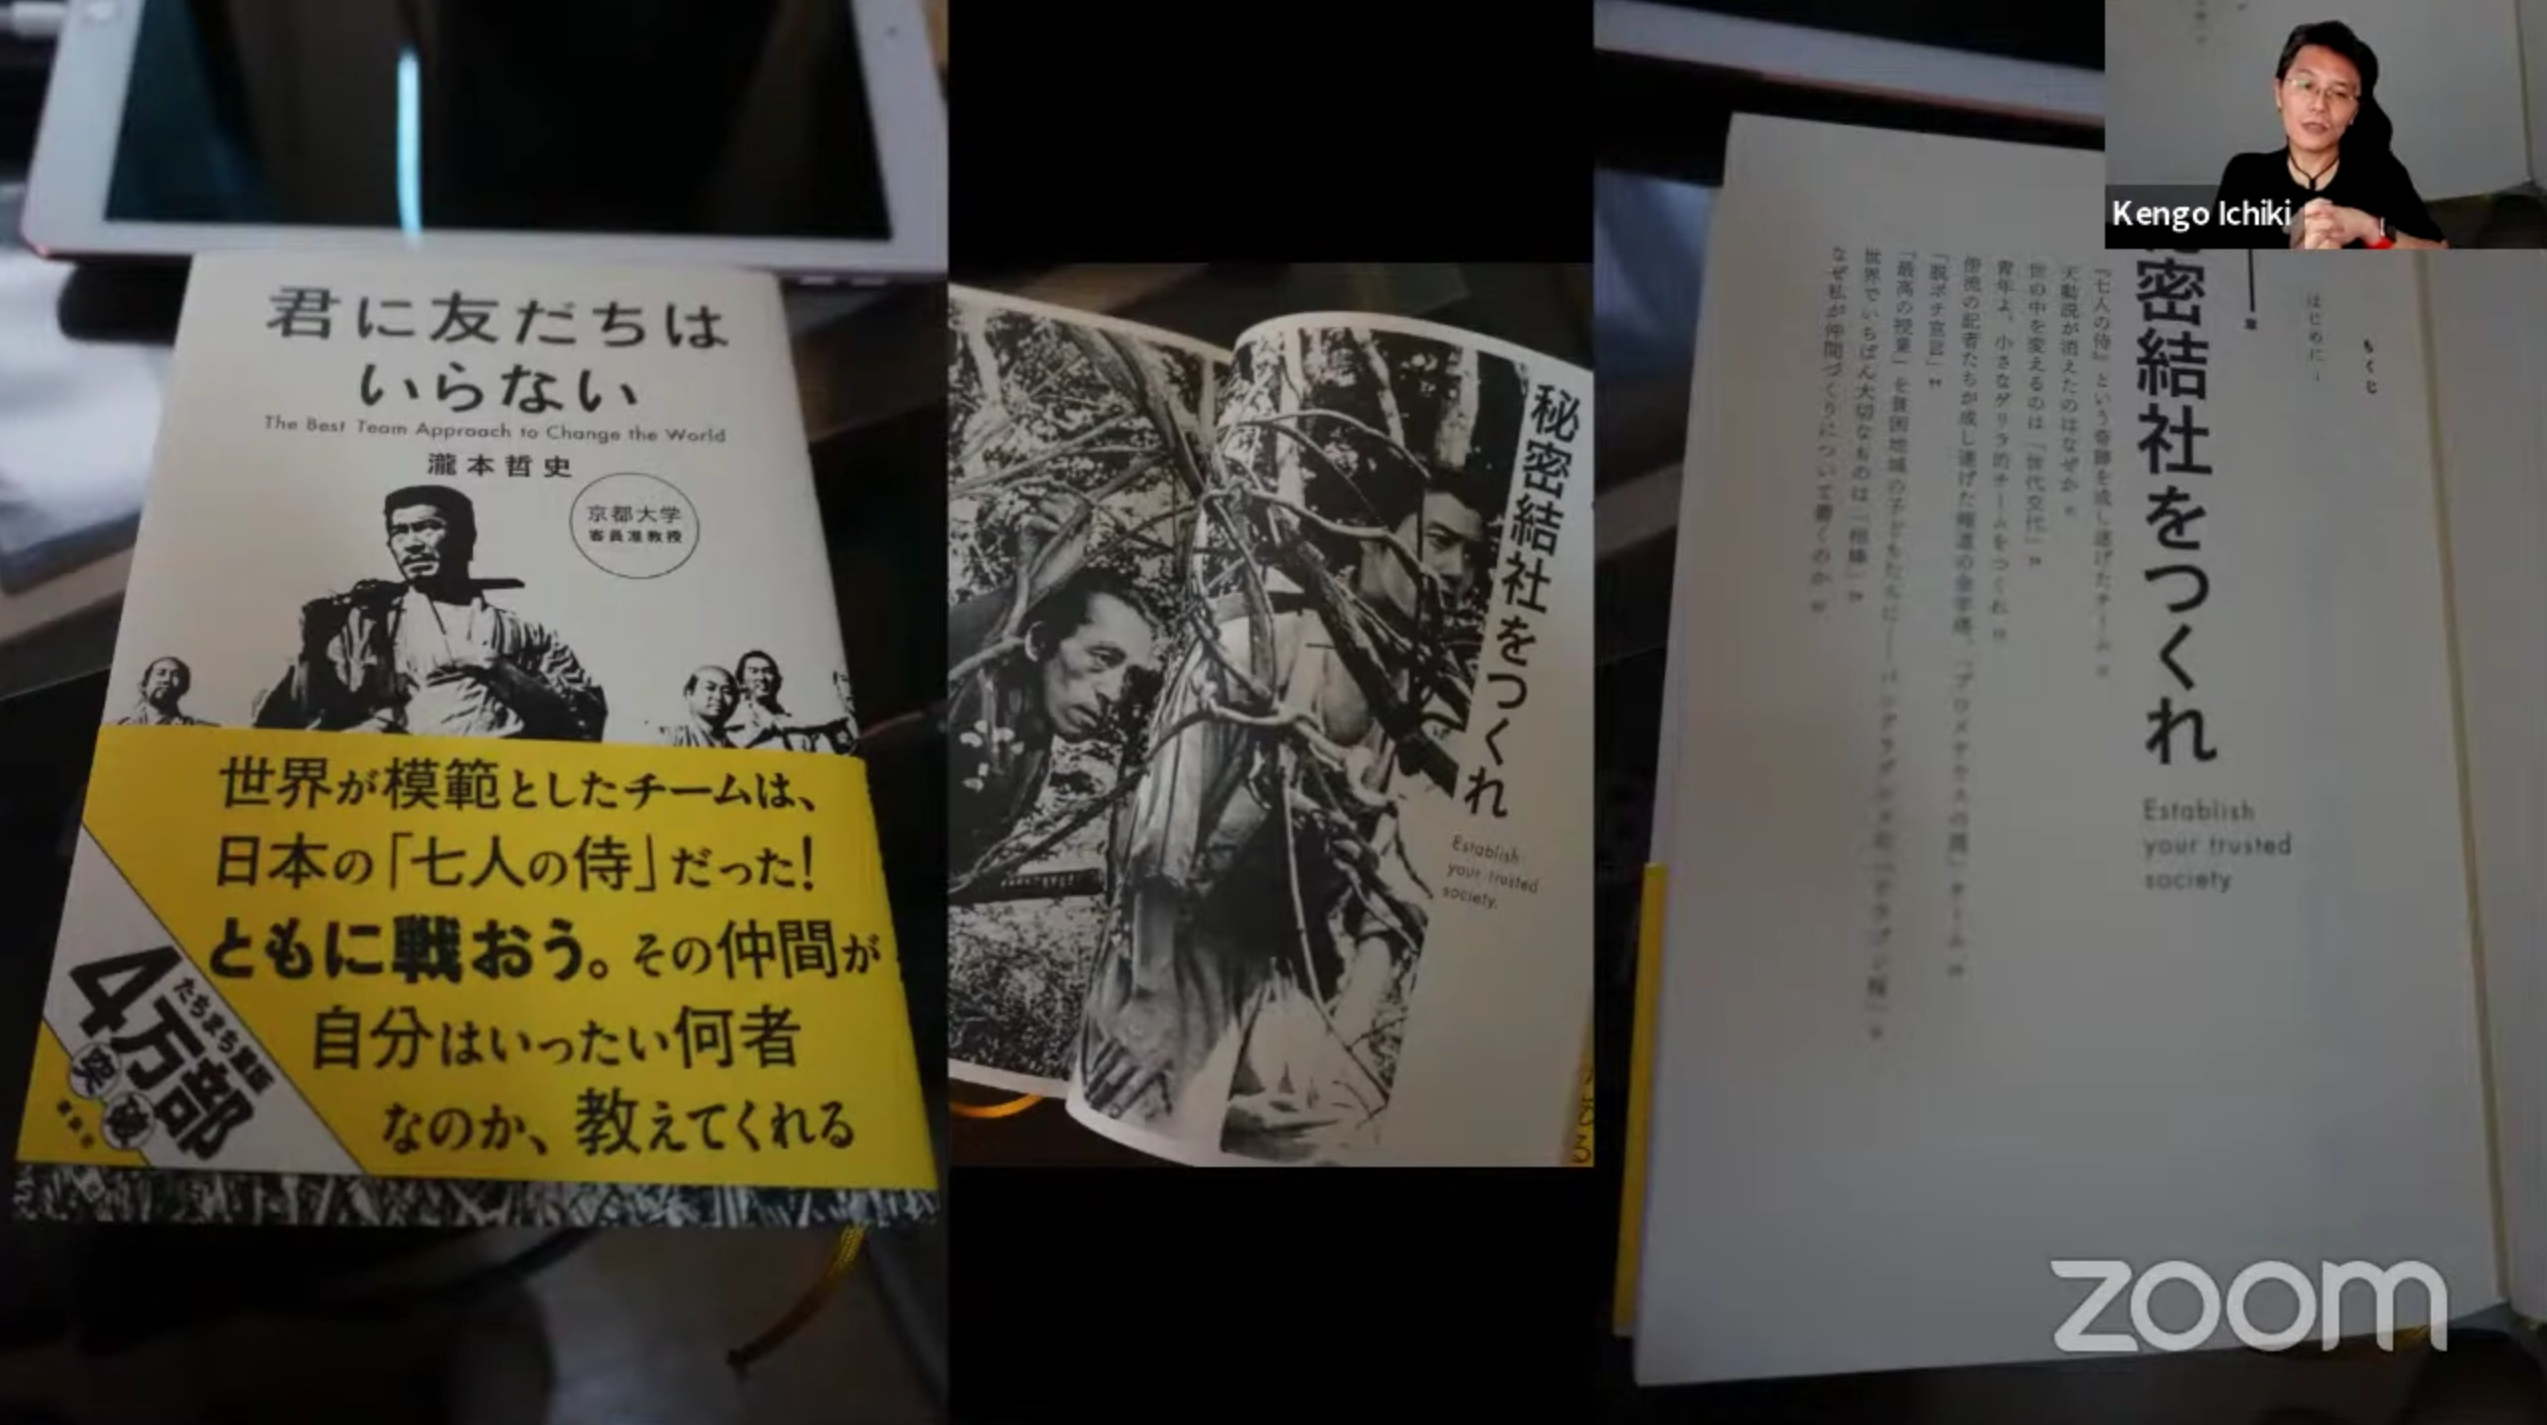 君に友だちは
いらない
The Best Team Approach to Change the World
瀧本哲史
京都大学
客員准教授
世界が模範としたチームは、
日本の「七人の侍」だった!
ともに戦おう。その仲間が
自分はいったい何者
なのか、教えてくれる
たちまち重版
4万部
突破
講談社
秘密結社をつくれ
Establish
your trusted
society.
もくじ
はじめに
密結社をつくれ
Establish
your trusted
society
『七人の侍』という奇跡を成し遂げたチーム
天動説が消えたのはなぜか
世の中を変えるのは「世代交代」
青年よ、小さなゲリラ的チームをつくれ
傍流の記者たちが成し遂げた報道の金字塔、「プロメテウスの罠」チーム
「脱ポチ宣言」
「最高の授業」を貧困地域の子どもたちに——バングラデシュ版「ドラゴン桜」
世界でいちばん大切なものは「相棒」
なぜ私が仲間づくりについて書くのか
Kengo Ichiki
zoom